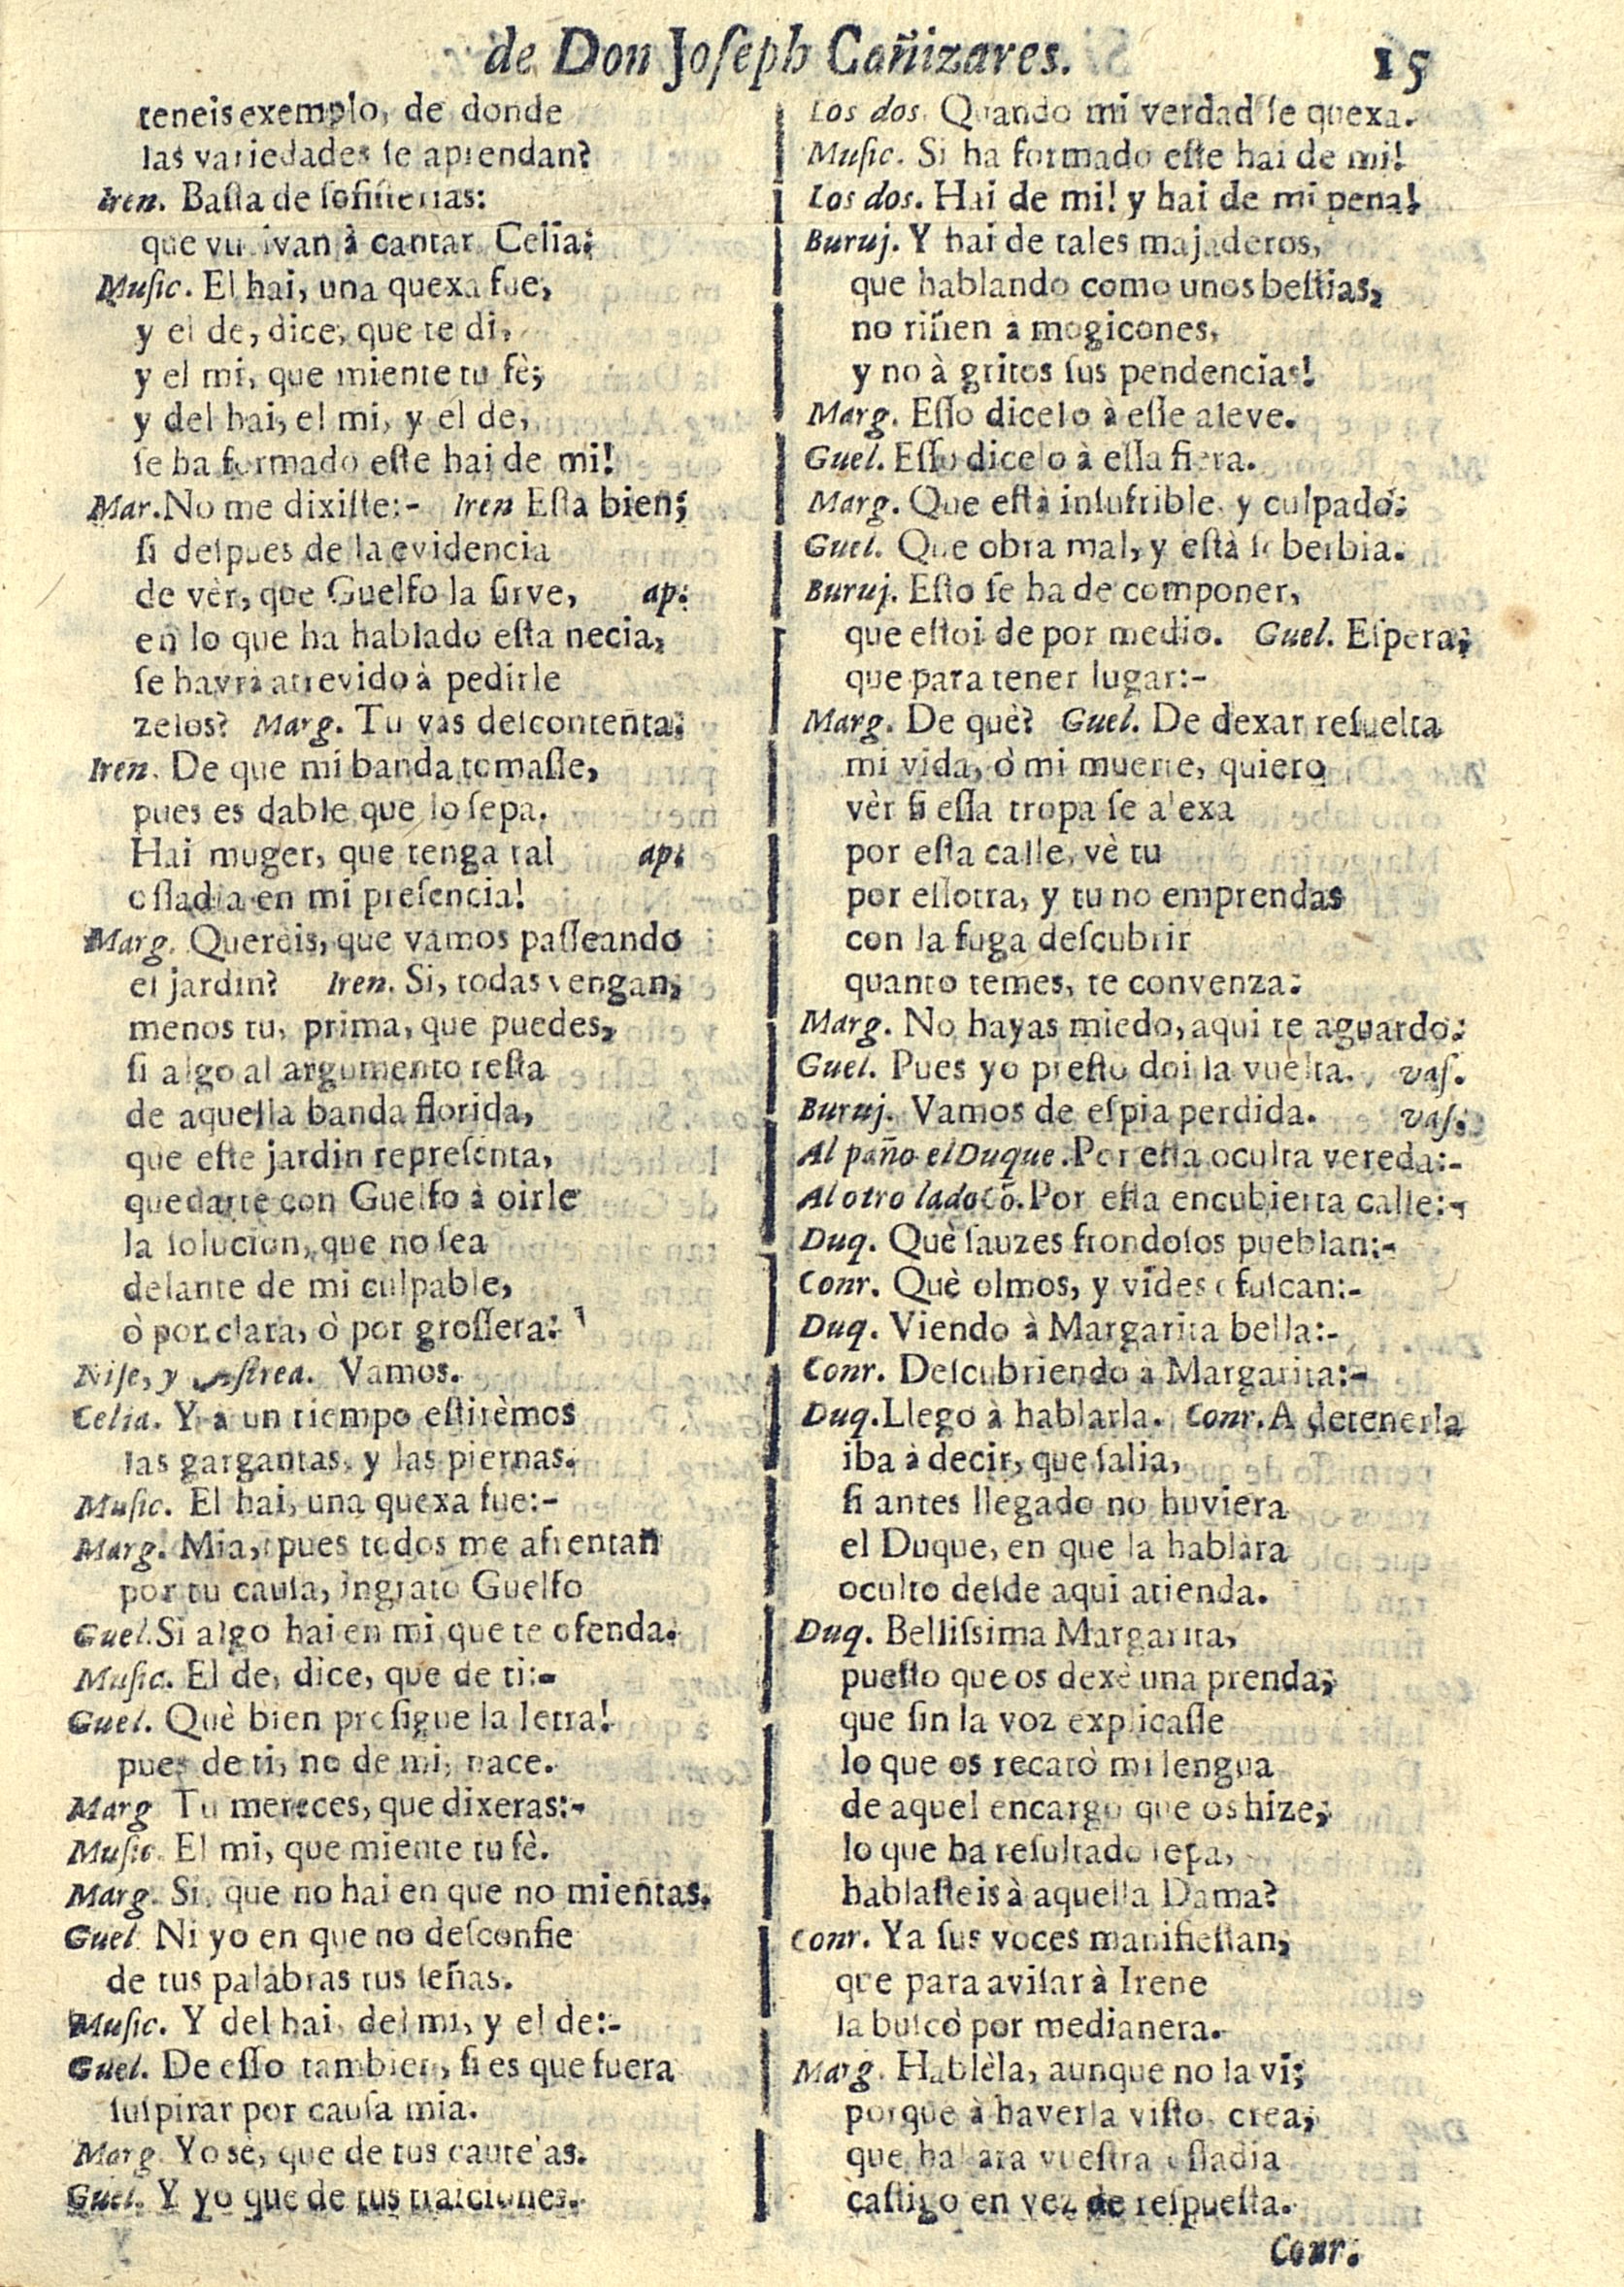 de Don Joſeph Cañizares. 15
teneis exemplo, de donde
las variedades ſe aprendan?
Iren. Baſta de ſofiſterias:
que vuelvan à cantar Celia:
Muſic. El hai, una quexa fue,
y el de, dice, que te di,
y el mi, que miente tu fè;
y del hai, el mi, y el de,
ſe ha formado eſte hai de mi!
Mar. No me dixiſte:- Iren Eſta bien;
ſi deſpues de la evidencia
de vèr, que Guelfo la ſirve, ap.
en lo que ha hablado eſta necia,
ſe havrà atrevido à pedirle
zelos? Marg. Tu vàs deſcontenta.
Iren. De que mi banda tomaſſe,
pues es dable que lo ſepa.
Hai muger, que tenga tal ap.
oſſadia en mi preſencia!
Marg. Querèis, que vamos paſſeando
el jardin? Iren. Si, todas vengan,
menos tu, prima, que puedes,
ſi algo al argumento reſta
de aquella banda florida,
que eſte jardin repreſenta,
quedarte con Guelfo à oirle
la ſolucion, que no ſea
delante de mi culpable,
ò por clara, ò por groſſera.
Niſe, y Aſtrea. Vamos.
Celia. Y à un tiempo eſtirèmos
las gargantas, y las piernas.
Muſic. El hai, una quexa fue:-
Marg. Mia, pues todos me afrentan
por tu cauſa, ingrato Guelfo
Guel. Si algo hai en mi que te ofenda.
Muſic. El de, dice, que de ti:-
Guel. Què bien proſigue la letra!
pues de ti, no de mi, nace.
Marg Tu mereces, que dixeras:-
Muſic. El mi, que miente tu fè.
Marg. Si, que no hai en que no mientas.
Guel Ni yo en que no deſconfie
de tus palabras tus ſeñas.
Muſic. Y del hai, del mi, y el de:-
Guel. De eſſo tambien, ſi es que fuera
ſuſpirar por cauſa mia.
Marg. Yo sè, que de tus cautelas.
Guel. Y yo que de tus traiciones.
Los dos. Quando mi verdad ſe quexa.
Muſic. Si ha formado eſte hai de mi!
Los dos. Hai de mi! y hai de mi pena!
Buruj. Y hai de tales majaderos,
que hablando como unos beſtias,
no riñen à mogicones,
y no à gritos ſus pendencias!
Marg. Eſſo dicelo à eſſe aleve.
Guel. Eſſo dicelo à eſſa fiera.
Marg. Que eſtà inſufrible, y culpado.
Guel. Que obra mal, y eſtà ſoberbia.
Buruj. Eſto ſe ha de componer,
que eſtoi de por medio. Guel. Eſpera,
que para tener lugar:-
Marg. De què? Guel. De dexar reſuelta
mi vida, ò mi muerte, quiero
vèr ſi eſſa tropa ſe alexa
por eſta calle, vè tu
por eſſotra, y tu no emprendas
con la fuga deſcubrir
quanto temes, te convenza.
Marg. No hayas miedo, aqui te aguardo.
Guel. Pues yo preſto doi la vuelta. vaſ.
Buruj. Vamos de eſpia perdida. vaſ.
Al paño el Duque. Por eſta oculta vereda:-
Al otro lado Cō. Por eſta encubierta calle:-
Duq. Què ſauzes frondoſos pueblan:-
Conr. Què olmos, y vides ofuſcan:-
Duq. Viendo à Margarita bella:-
Conr. Deſcubriendo à Margarita:-
Duq. Llego à hablarla. Conr. A detenerla
iba à decir, que ſalia,
ſi antes llegado no huviera
el Duque, en que la hablàra
oculto deſde aqui atienda.
Duq. Belliſsima Margarita,
pueſto que os dexè una prenda,
que ſin la voz explicaſſe
lo que os recatò mi lengua
de aquel encargo que os hize,
lo que ha reſultado ſepa,
hablaſteis à aquella Dama?
Conr. Ya ſus voces manifieſtan,
que para aviſar à Irene
la buſcò por medianera.
Marg. Hablèla, aunque no la vi;
porque à haverla viſto, crea,
que hallara vueſtra oſſadia
caſtigo en vez de reſpueſta.
Conr.